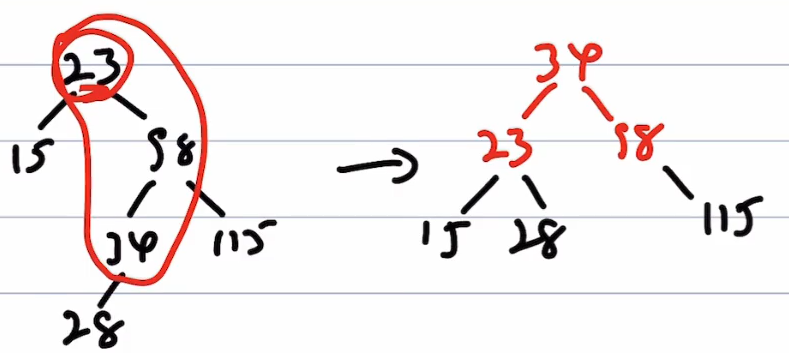 23
15 98
34 115
28
→
34
23 98
15 28 115